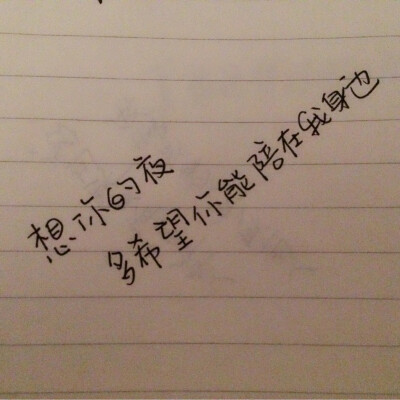 想你的夜
多希望你能陪在我身边